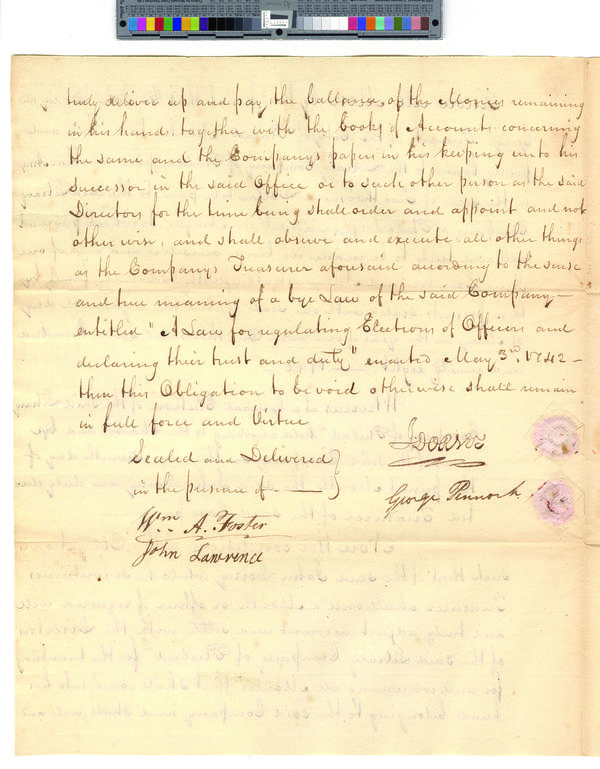 truly deliver up and pay the Ballance of the Monies remaining
in his hand, together with the Books of Accounts concerning
the same and the Companys papers in his keeping unto his
successor in the said Office or to such other person as the said
Directors for the time being shall order and appoint and not
otherwise, and shall, observe and execute all other things
as the Companys Treasurer aforesaid according to the sense
and true meaning of a bye Law of the said Company —
entitled "A Law for regulating Elections of Officers and
declaring their trust and duty" enacted May 3rd. 1742 —
then this Obligation to be void otherwise shall remain
in full force and Virtue
Sealed and Delivered }
in the presence of — }
J DORSEY
George Pennock
Wm A. Foster
John Lawrence